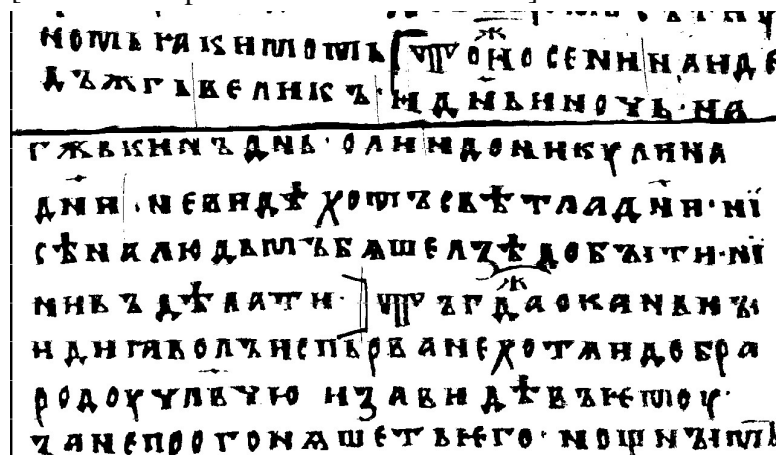 номь ꙗкимомь [ тоиⷤ осени наиде
дъжгь великъ· и дн҃ь и ночь· на
гжькинъ днь· оли и до никулина
дн҃и· не видѣ хомъ свѣтла дн҃и· нї
сѣна людьмъ бѧше лзѣ добꙑти· нї
нивъ дѣлати· ] тъгдаⷤ оканьнꙑ
и диꙗволъ испьрва не хотѧи добра
родоу члв҃чю и завидѣвъ ѥмоу·
зане прогонѧшеть ѥго·